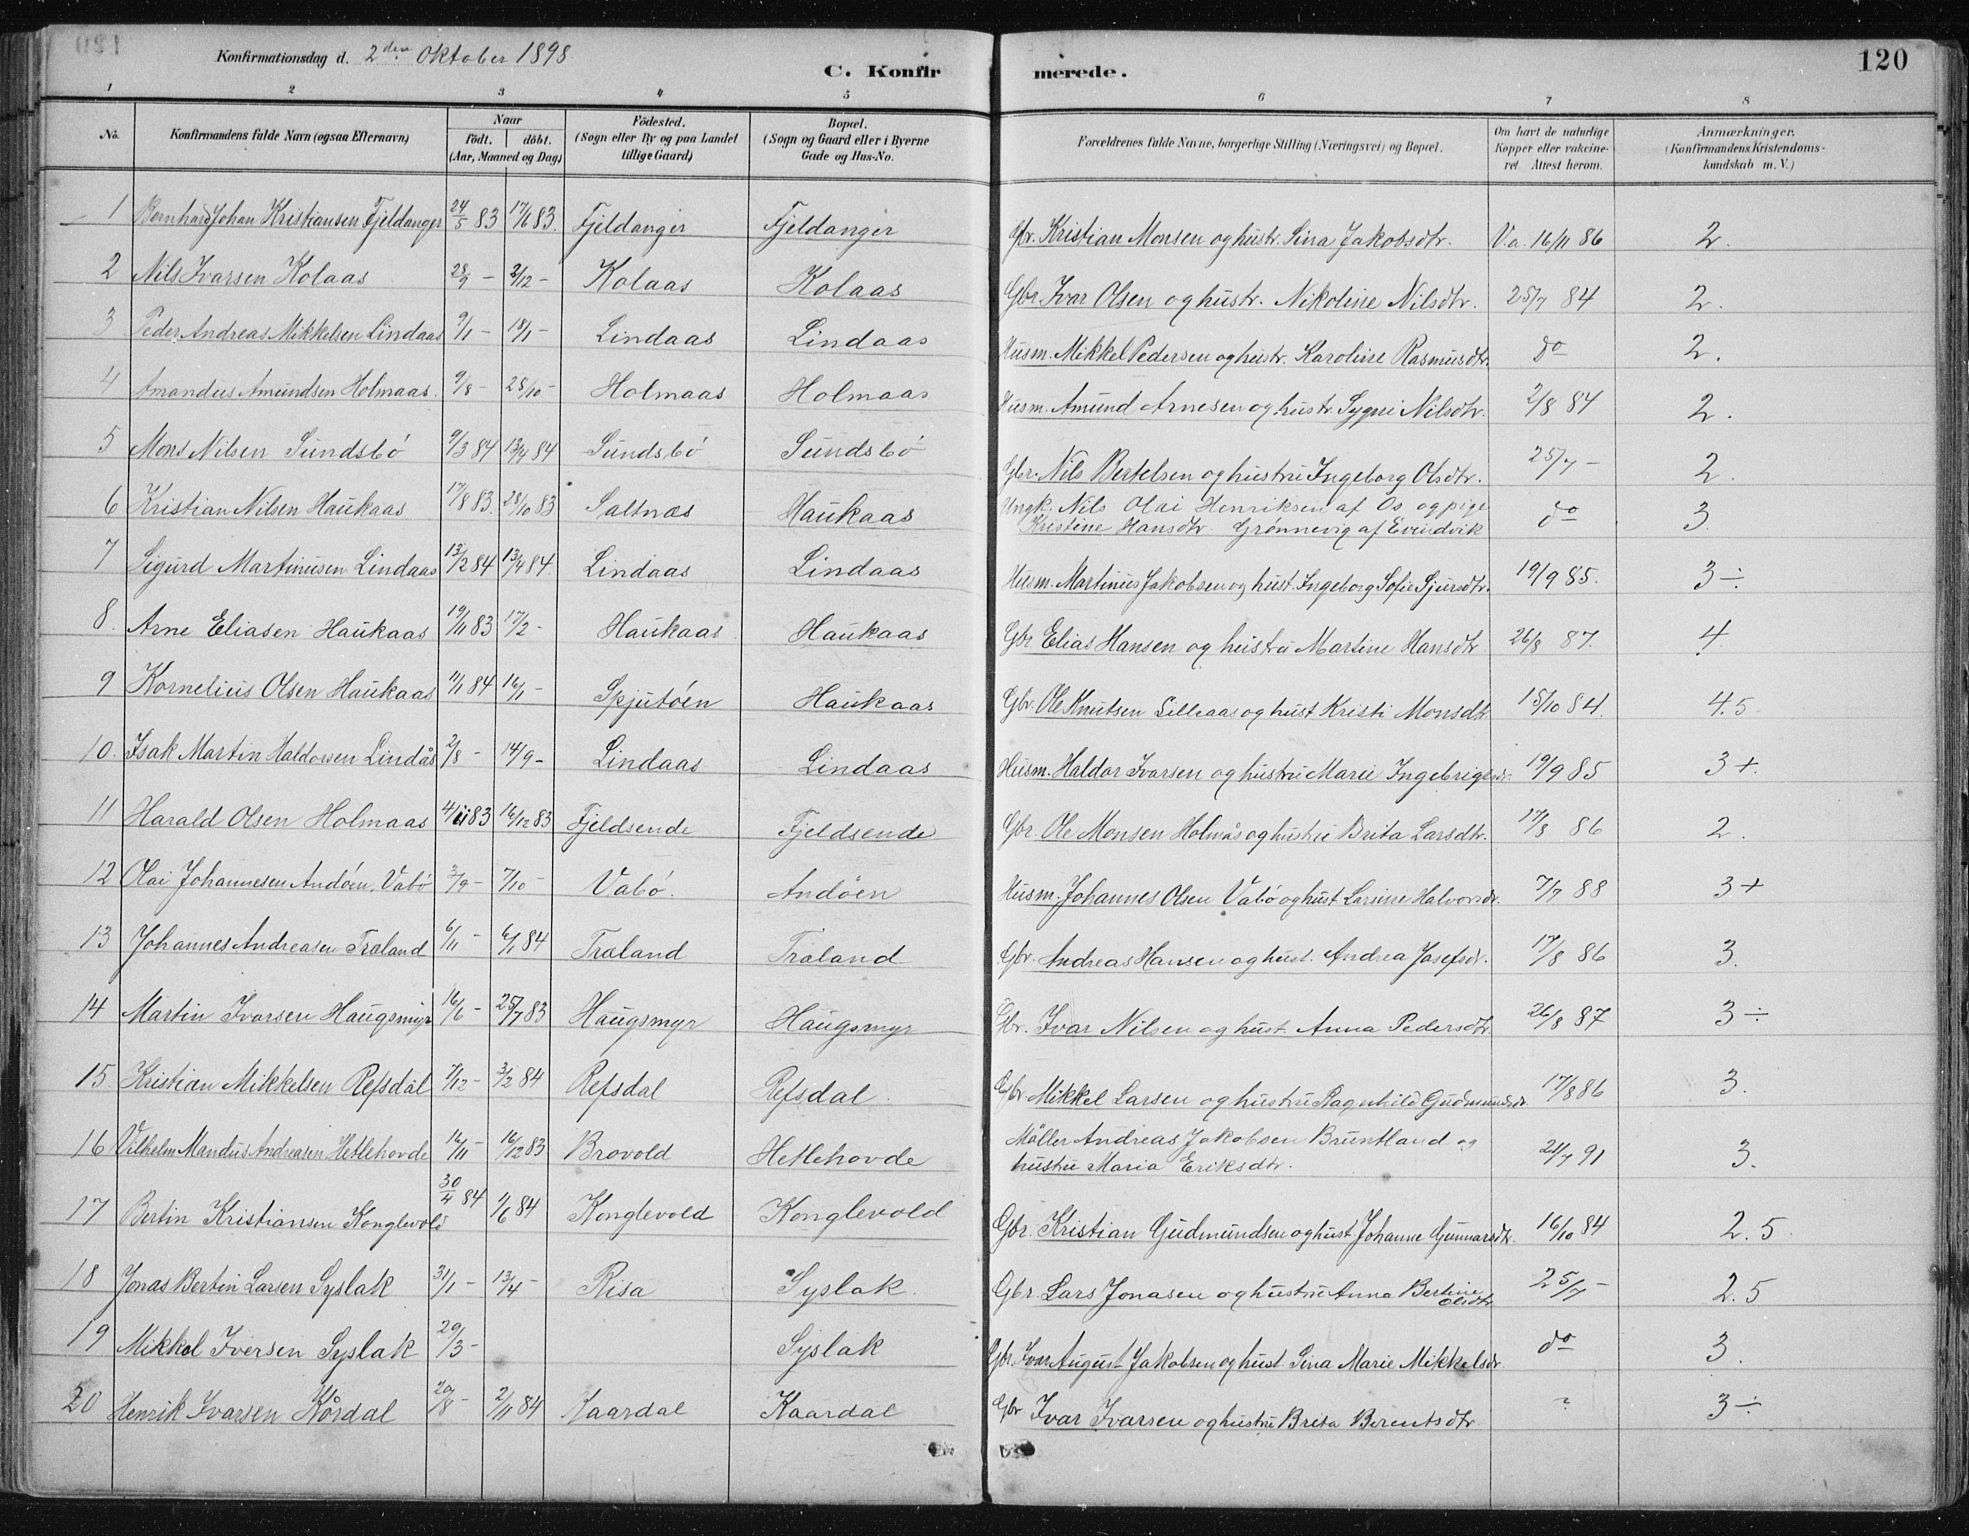 Konfirmationsdag d. 2den Oktober 1898
C. Konfirmerede.
120
1 2 3 4 5 6 7 8
No. | Konfirmandens fulde Navn (ogsaa Efternavn) | Naar födt. döbt. (Aar, Maaned og Dag) | Födested. (Sogn eller By og paa Landet tillige Gaard) | Bopæl. (Sogn og Gaard eller i Byerne Gade og Hus-No. | Forældrenes fulde Navne, borgerlige Stilling (Næringsvei) og Bopæl. | Om havt de naturlige Kopper eller vakcineret. Attest herom. | Anmærkninger. (Konfirmandens Kristendomskundskab m. V.)
1 Bernhard Johan Kristiansen Fjeldanger 24/5 83 17/6 83. Fjeldanger Fjeldanger Gbr. Kristian Monsen og hustr. Sina Jakobsdtr. Va. 16/11 86 2.
2 Nils Ivarsen Kolaas 28/9 - 2/12 - Kolaas Kolaas Gbr. Ivar Olsen og hustr. Nikoline Nilsdtr. 25/7 84 2.
3 Peder Andreas Mikkelsen Lindaas 9/1 - 18/1 - Lindaas Lindaas Husm. Mikkel Pedersen og hustr. Karoline Rasmusdtr. do 2.
4 Amandus Amundsen Holmaas. 9/8 - 28/10 - Holmaas Holmaas Husm. Amund Arnesen og hustr. Sygni Nilsdtr. 2/8 84 2.
5 Mons Nilsen Sundsbó 9/3 84 13/4 84 Sundsbó Sundsbó Gbr. Nils Bertelsen og hustru Ingeborg Olsdtr. 25/7 - 2.
6 Kristian Nilsen Haukaas 17/8 83. 28/10 83 Saltnæs Haukaas Ungk. Nils Olai Henriksen af Os og pige Kristine Hansdtr. Grønnevig af Evindvik do 3
7 Sigurd Martinusen Lindaas 13/2 84 13/4 84. Lindaas Lindaas Husm. Martinus Jakobsen og hust. Ingeborg Sofie Sjursdtr. 19/9 85. 3 ÷
8. Arne Eliasen Haukaas 19/11 83 17/2 - Haukaas Haukaas Gbr Elias Hansen og hustru Martine Hansdtr. 26/8 87. 4
9 Kornelius Olsen Haukaas 11/1 84 16/1 - Spjutóen Haukaas Gbr. Ole Knutsen Lilleaas og hust Kristi Monsdtr 15/10 84. 4.5
10. Isak Martin Haldorsen Lindås 2/8 - 14/9 - Lindaas Lindaas Husm. Haldor Ivarsen og hustru Marie Ingebrigtsdr. 19/9 85 3 +.
11 Harald Olsen Holmaas 4/11 83 16/12 83 Fjeldsende Fjeldsende Gbr. Ole Monsen Holmås og hustru Brita Larsdtr. 17/8 86 2.
12 Olai Johannesen Andóen, Vabó 3/9 - 7/10 - Vabó. Andóen Husm. Johannes Olsen Vabó og hust Larsine Halvorsdr. 7/7 88 3 +
13 Johannes Andreasen Træland 6/11 - 6/1 84 Træland Træland Gbr. Andreas Hansen og hust. Andrea Josefsdr. 17/8 86 3.
14 Martin Ivarsen Haugsmyr 16/6 - 25/7 83 Haugsmyr Haugsmyr Gbr. Ivar Nilsen og hust Anna Pedersdtr. 26/8 87 3 ÷
15. Kristian Mikkelsen Refsdal 7/12 - 3/2 84 Refsdal Refsdal Gbr. Mikkel Larsen og hustru Ragnhild Gudmundsdr 17/8 86 3.
16 Vilhelm Mandus Andreasen Hetlehovde 16/11 - 16/12 83 Brovold Hetlehovde Möller Andreas Jakobsen Bruntland og hustru Maria Eriksdtr. 24/7 91 3.
17 Bertin Kristiansen Konglevold 30/4 84 1/6 84 Konglevold Konglevold Gbr. Kristian Gudmundsen og hust. Johanne Gunnarsdtr. 16/10 84 2.5
18 Jonas Bertin Larsen Syslak 31/1 - 13/4 - Risa Syslak. Gbr. Lars Jonasen og hustru Anna Bertine Olsdtr 25/7 - 2.5
19 Mikkel Iversen Syslak 29/3 - Syslak Gbr. Ivar August Jakobsen og hust. Sina Marie Mikkelsdr. do 3.
20 Henrik Ivarsen Kårdal 29/8 - 2/11 84 Kaardal Kaardal Gbr Ivar Ivarsen og hustru Brita Berentsdtr ? 3 ÷